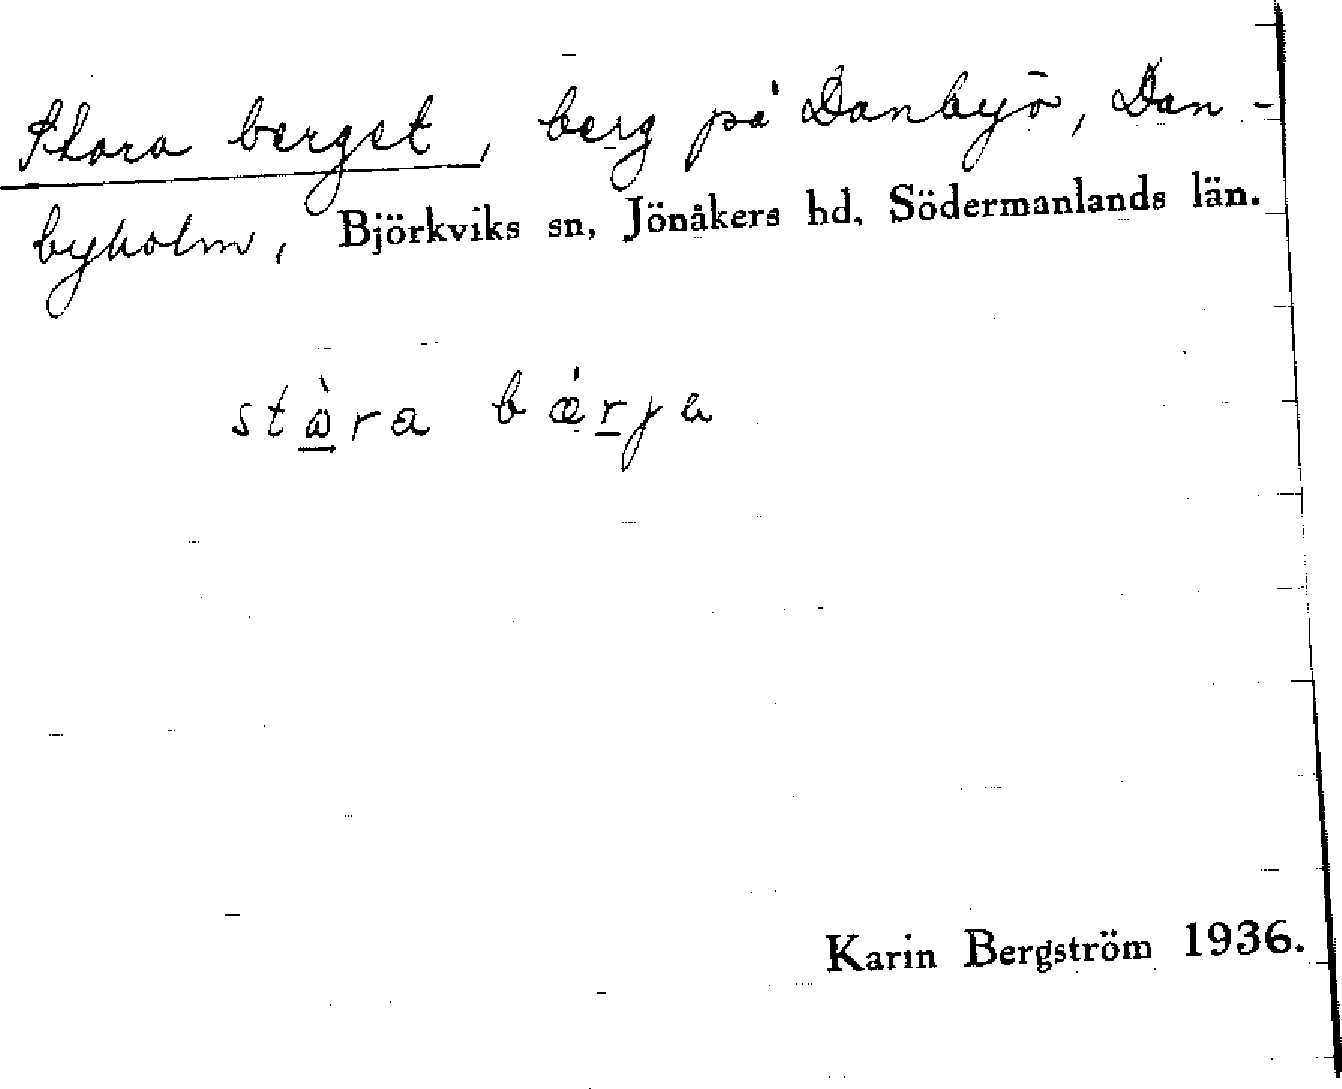 Stora berget, berg på Danbyö, Dan-
byholm, Björkviks sn, Jönåkers hd, Södermanlands län.
stὼra bǽrja
Karin Bergström 1936.